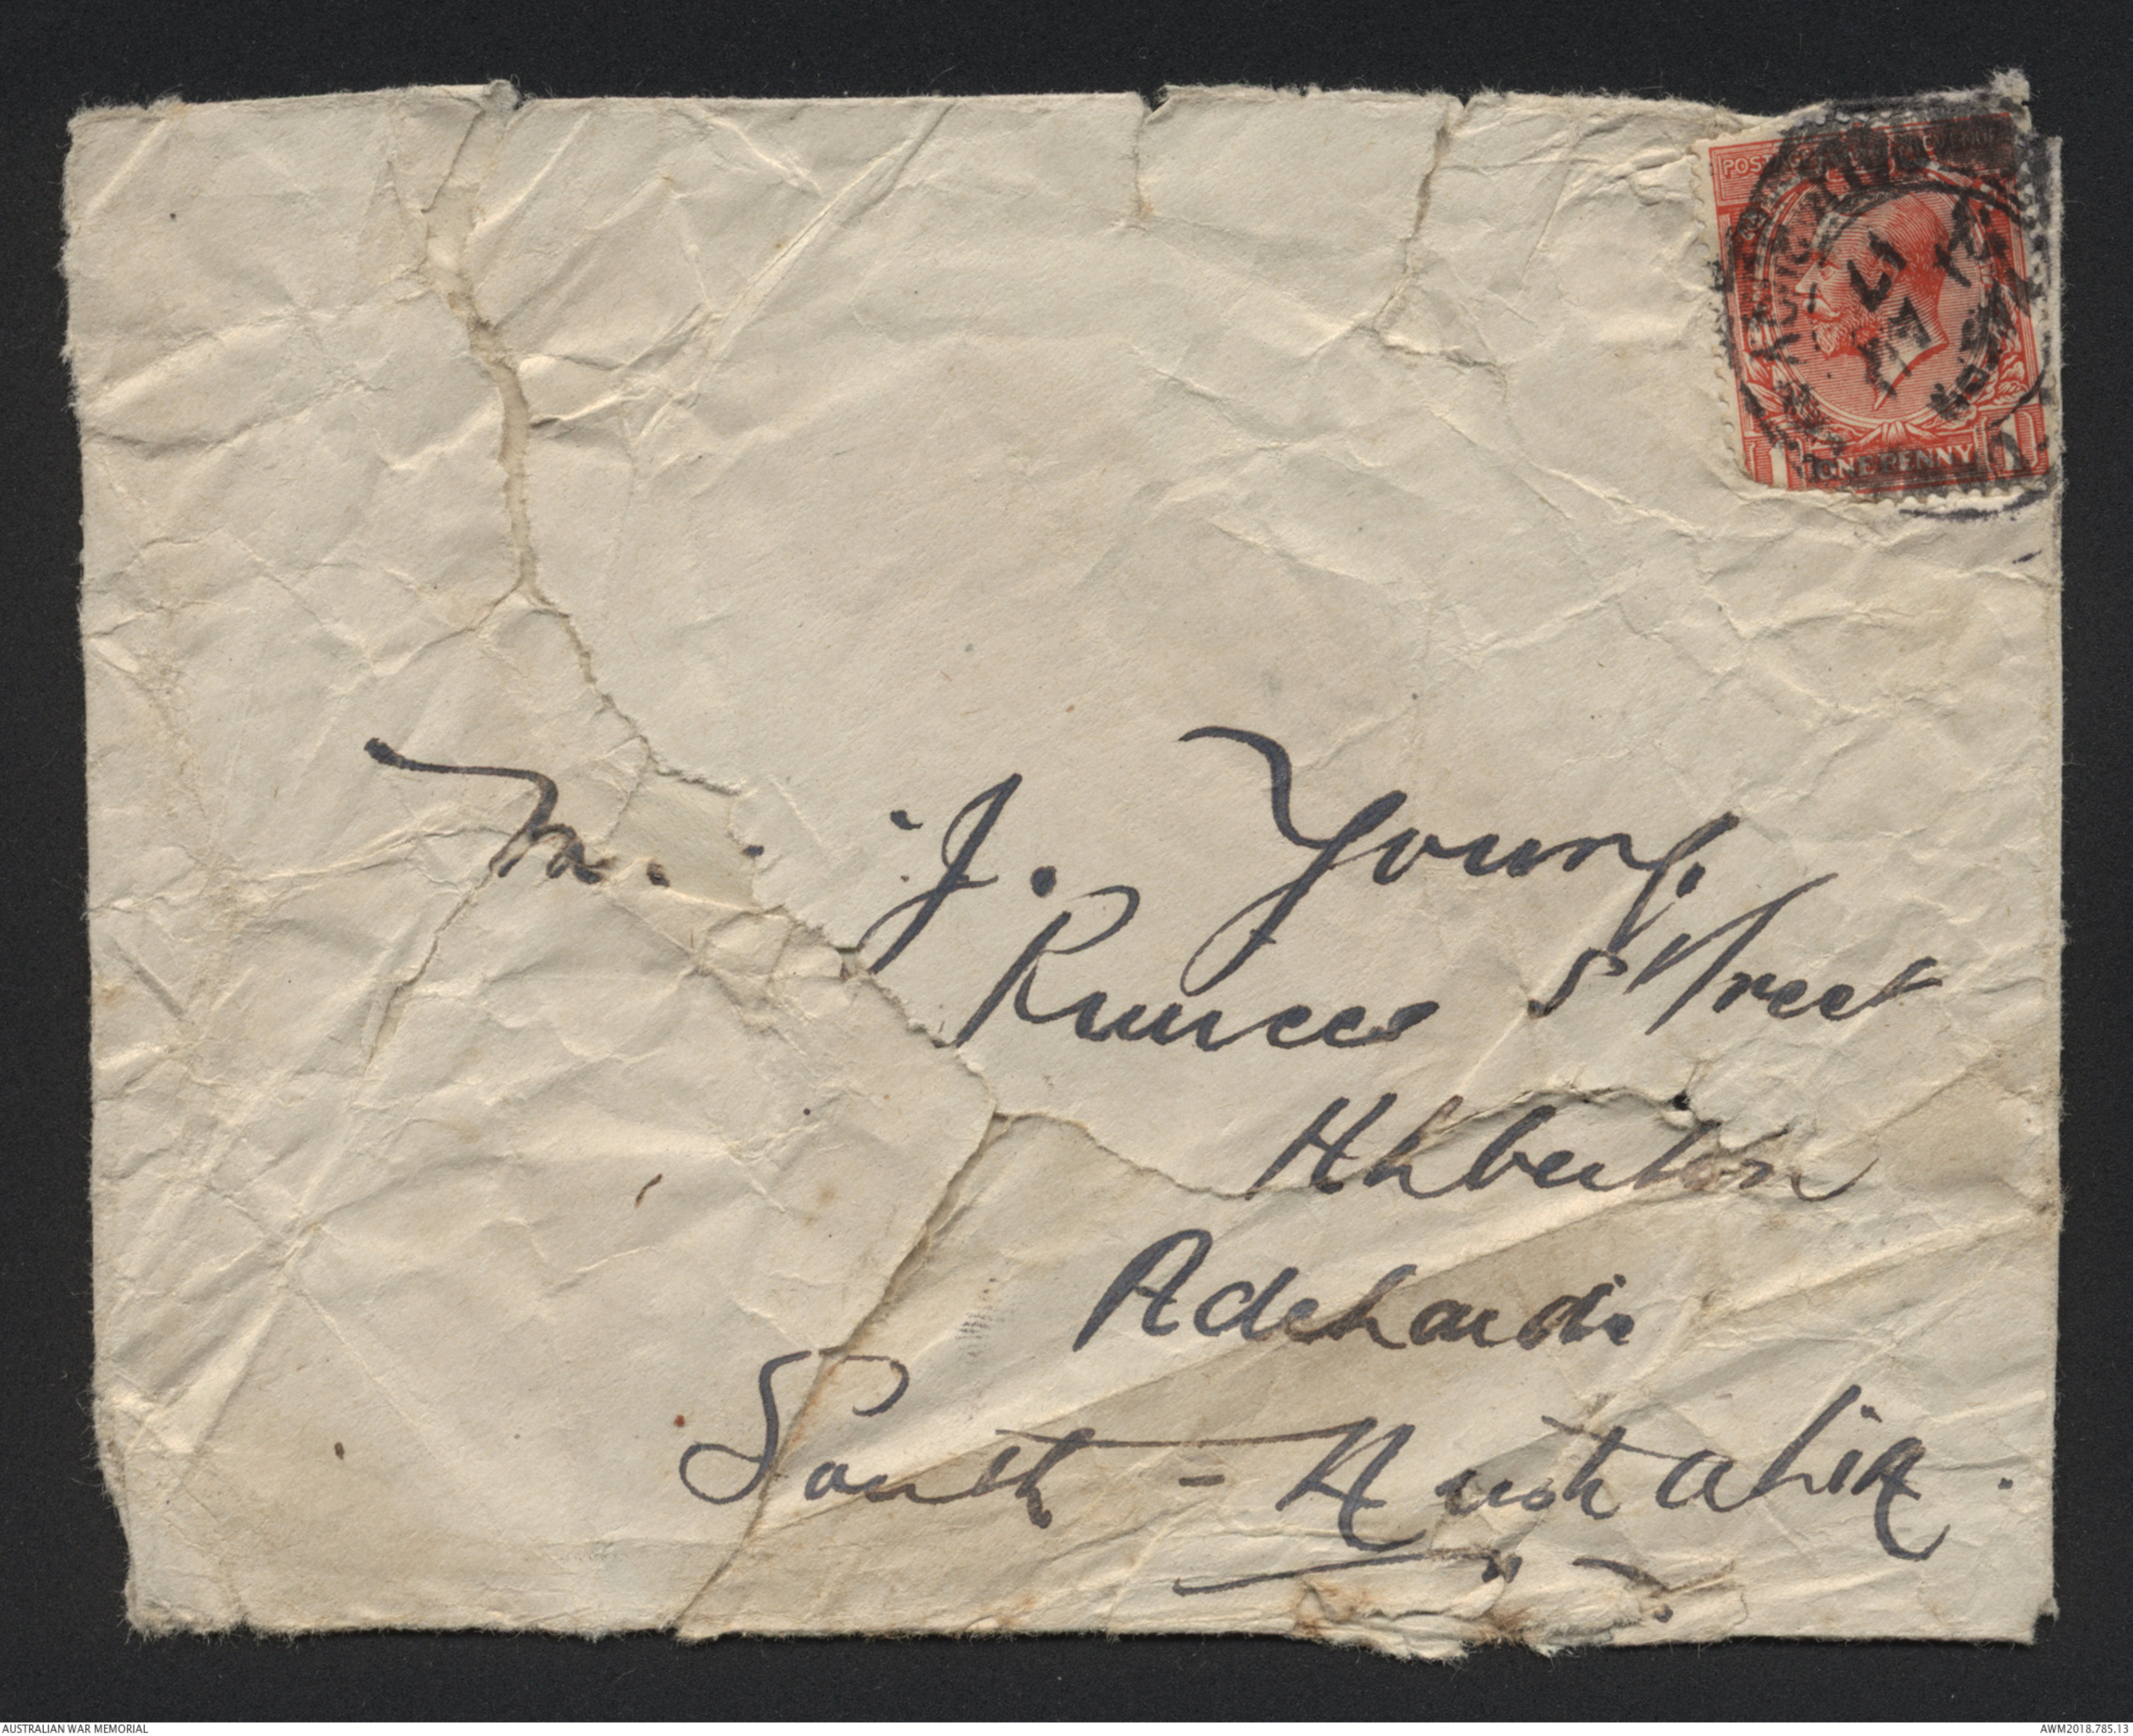 POSTAGE REVENUE
17
ONE PENNY
M. J. Young.
Princes Street
Alberton
Adelaide
South - Australia.
AUSTRALIAN WAR MEMORIAL
AWM2018.785.13